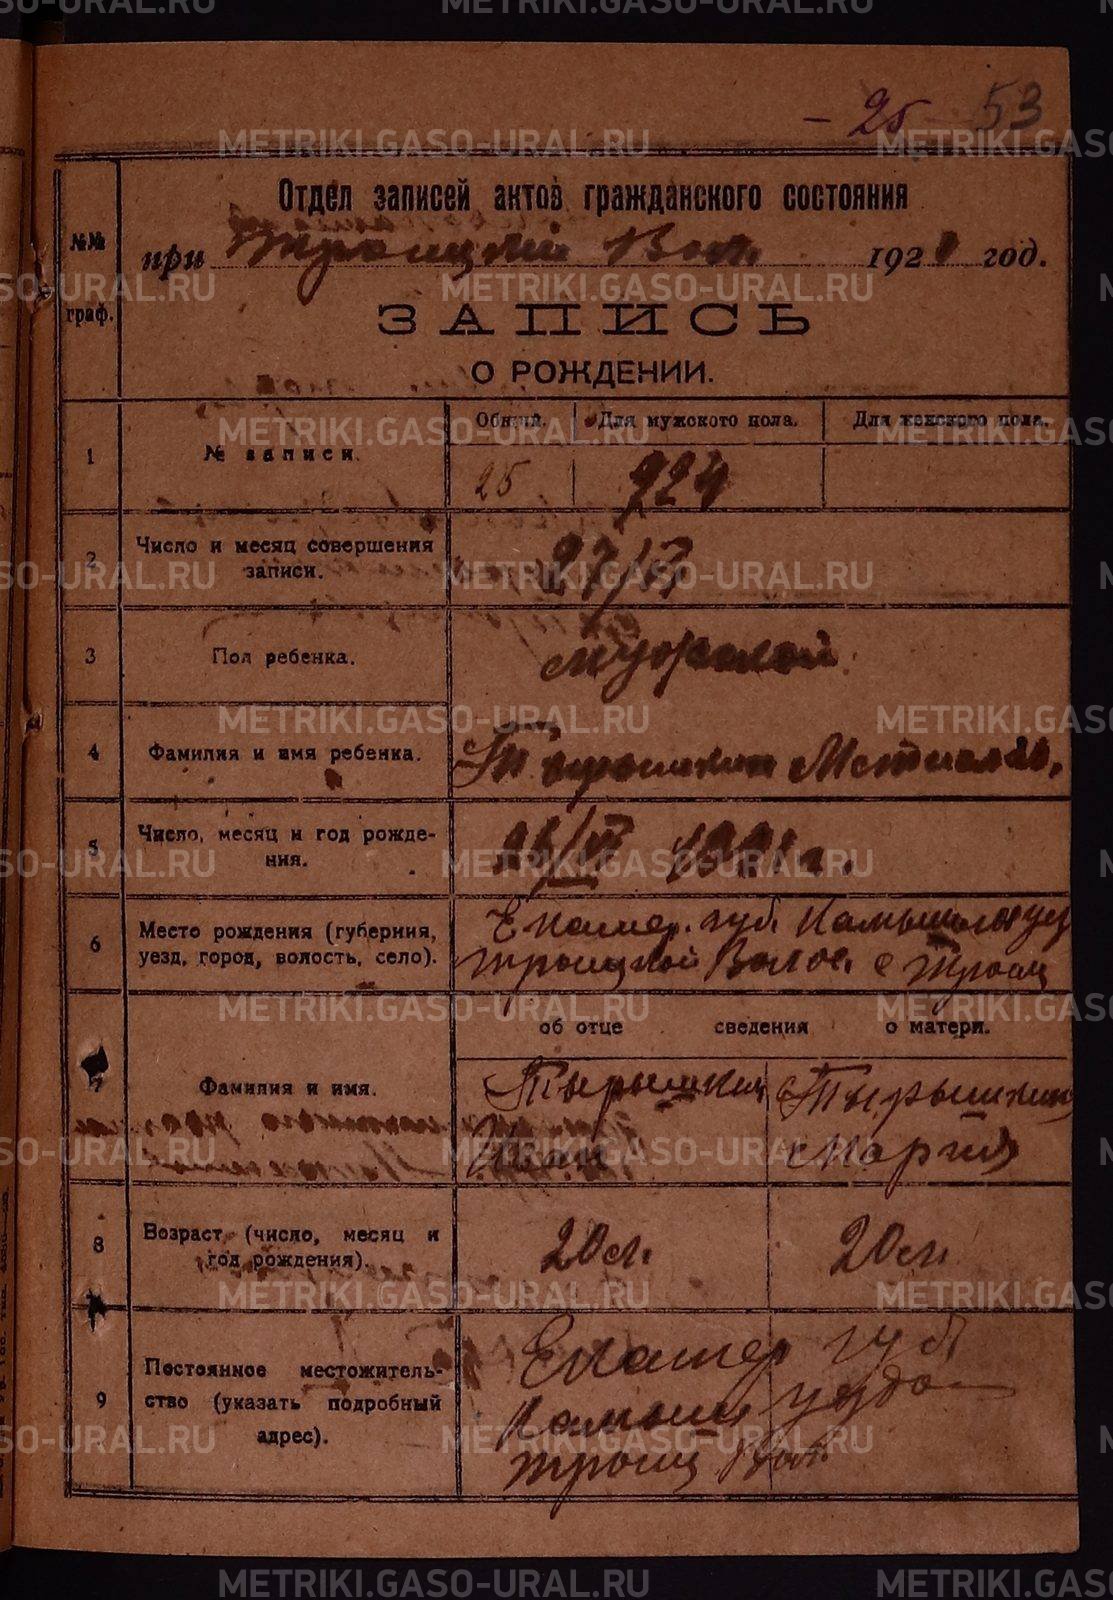 - 25 - 53
Отдел записей актов гражданского состояния
при Троицкой Вол. 1921 год.
№№ граф.
ЗАПИСЬ
О РОЖДЕНИИ.
Общий. Для мужского пола. Для женского пола.
1 № записи. 25
2 Число и месяц совершения
записи. 27/
3 Пол ребенка. мужской
4 Фамилия и имя ребенка. Тырышкин Мстислав,
5 Число, месяц и год рожде-
ния. 1921 г.
6 Место рождения (губерния, Екатер. губ. Камышлов уез
уезд, город, волость, село). троицкой Волос. с Троиц
об отце сведения о матери.
7 Фамилия и имя. Тырышкин Тырышкин
Иван Мария
8 Возраст (число, месяц и
год рождения). 20 л. 20 л.
9 Постоянное местожитель-
ство (указать подробный
адрес).
Екатер губ
Камыш уезда
троиц Вол.
METRIKI.GASO-URAL.RU